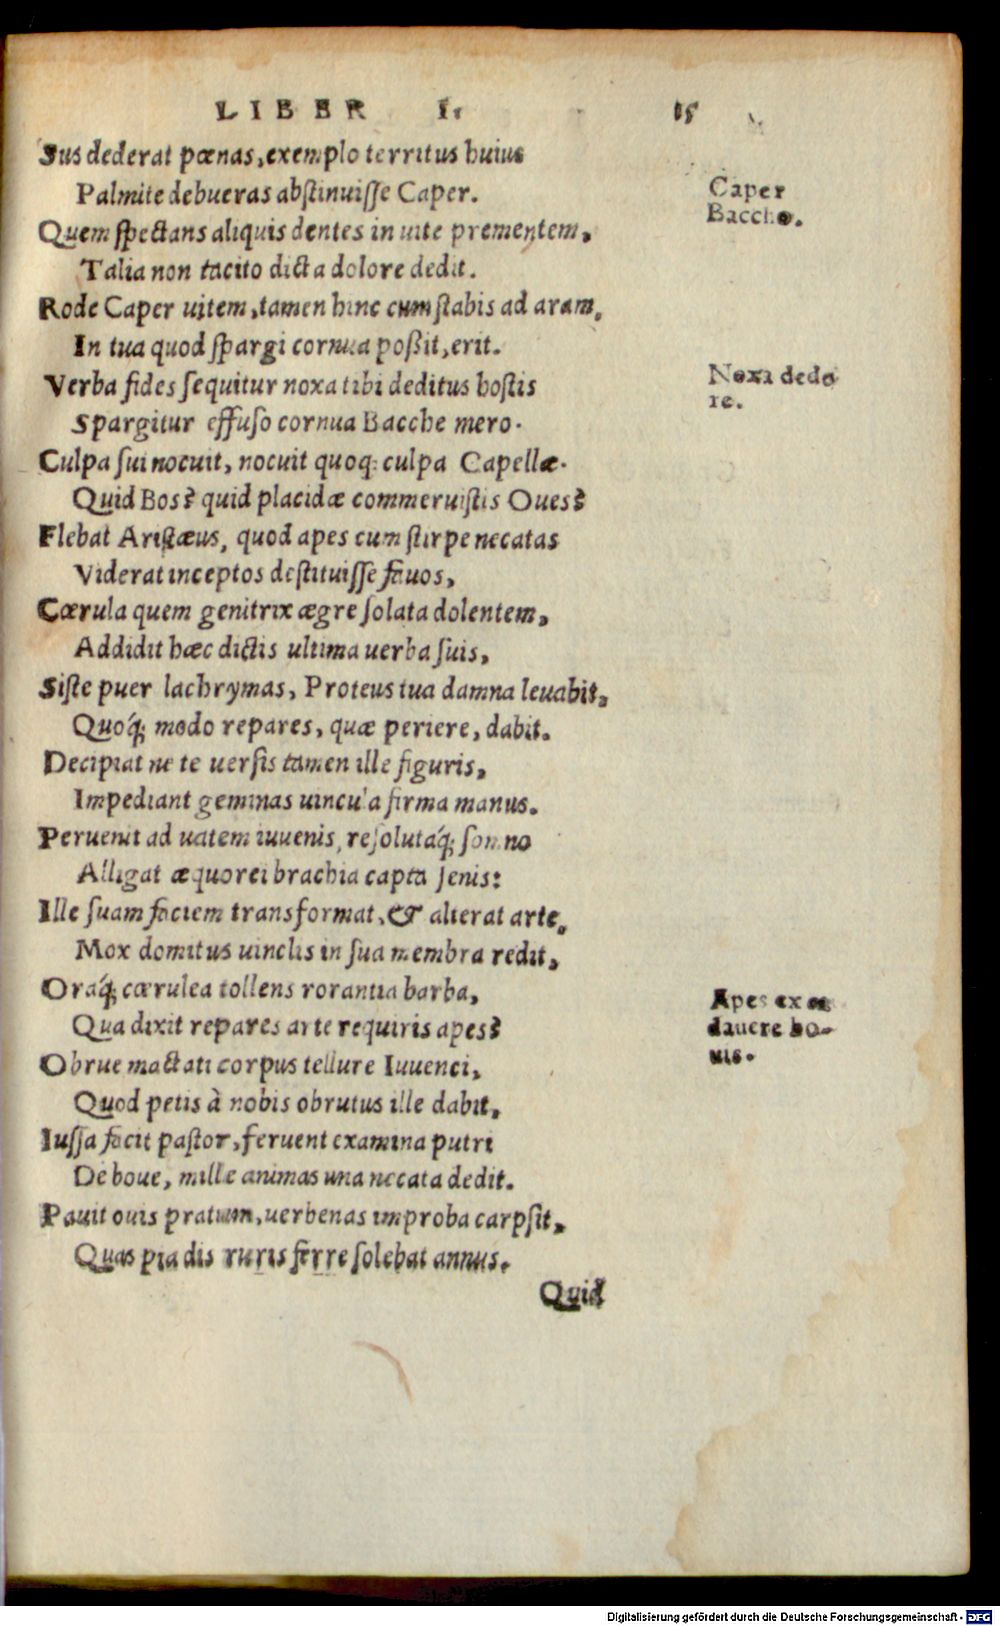 LIBER I. 15
Sus dederat pœnas, exemplo territus huius
Palmite debueras abstinuisse Caper.
Caper
Baccho.
Quem spectans aliquis dentes in uite prementem,
Talia non tacito dicta dolore dedit.
Rode Caper uitem, tamen hinc cum stabis ad aram,
In tua quod spargi cornua poßit, erit.
Verba fides sequitur noxa tibi deditus hostis
Noxa dede
re.
Spargitur effuso cornua Bacche mero.
Culpa sui nocuit, nocuit quoq; culpa Capellæ.
Quid Bos? quid placidæ commeruistis Oues?
Flebat Aristæus, quod apes cum stirpe necatas
Viderat inceptos destituisse fauos,
Cœrula quem genitrix ægre solata dolentem,
Addidit hæc dictis ultima uerba suis,
Siste puer lachrymas, Proteus tua damna leuabit,
Quoq́; modo repares, quæ periere, dabit.
Decipiat ne te uersis tamen ille figuris,
Impediant geminas uincula firma manus.
Peruenit ad uatem iuuenis, resolutaq́; somno
Alligat æquorei brachia capta senis:
Ille suam faciem transformat, & alterat arte,
Mox domitus uinclis in sua membra redit,
Oraq́; cœrulea tollens rorantia barba,
Apes ex ca
dauere bo-
uis.
Qua dixit repares arte requiris apes?
Obrue mactati corpus tellure Iuuenci,
Quod petis à nobis obrutus ille dabit,
Iussa facit pastor, feruent examina putri
De boue, mille animas una necata dedit.
Pauit ouis pratum, uerbenas improba carpsit,
Quas pia dis ruris ferre solebat annus.
Quid
Digitalisierung gefördert durch die Deutsche Forschungsgemeinschaft - DFG